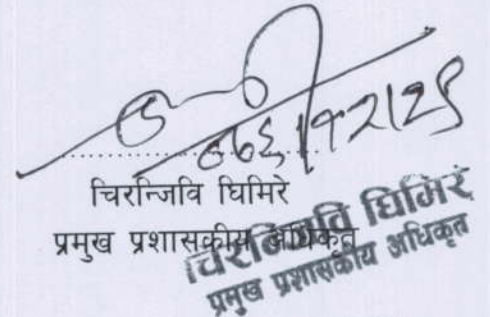 ०७६।१२।२९
चिरन्जिवि घिमिरे
प्रमुख प्रशासकीय अधिकृत
चिरन्जिवि घिमिरे
प्रमुख प्रशासकीय अधिकृत